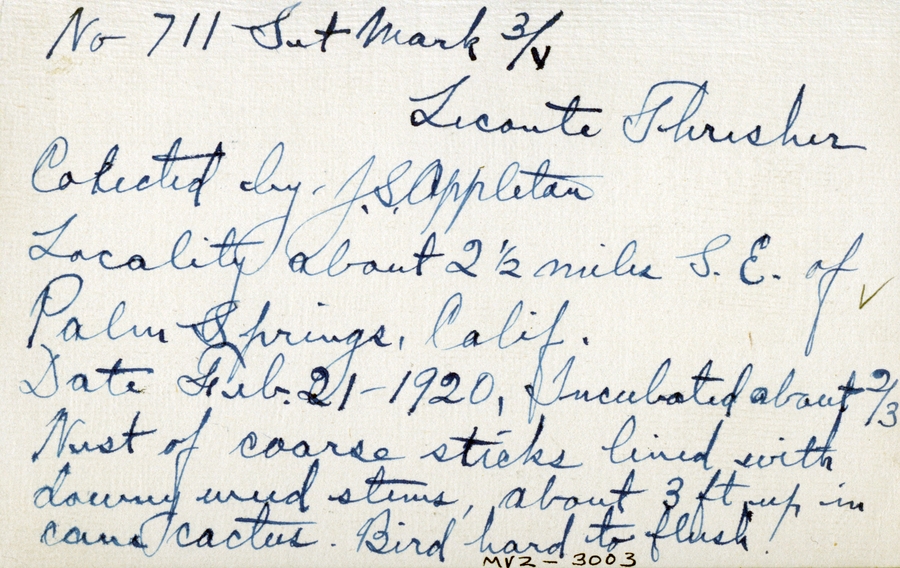 No 711 Set Mark 3/V
Leconte Thrasher
Collected by J. S. Appleton
Locality about 2 1/2 miles S. E. of
Palm Springs, Calif.
Date Feb. 21-1920, Incubated about 2/3
Nest of coarse sticks lined with
downy weed stems, about 3 ft. up in
cane cactus. Bird hard to flush.
MVZ - 3003